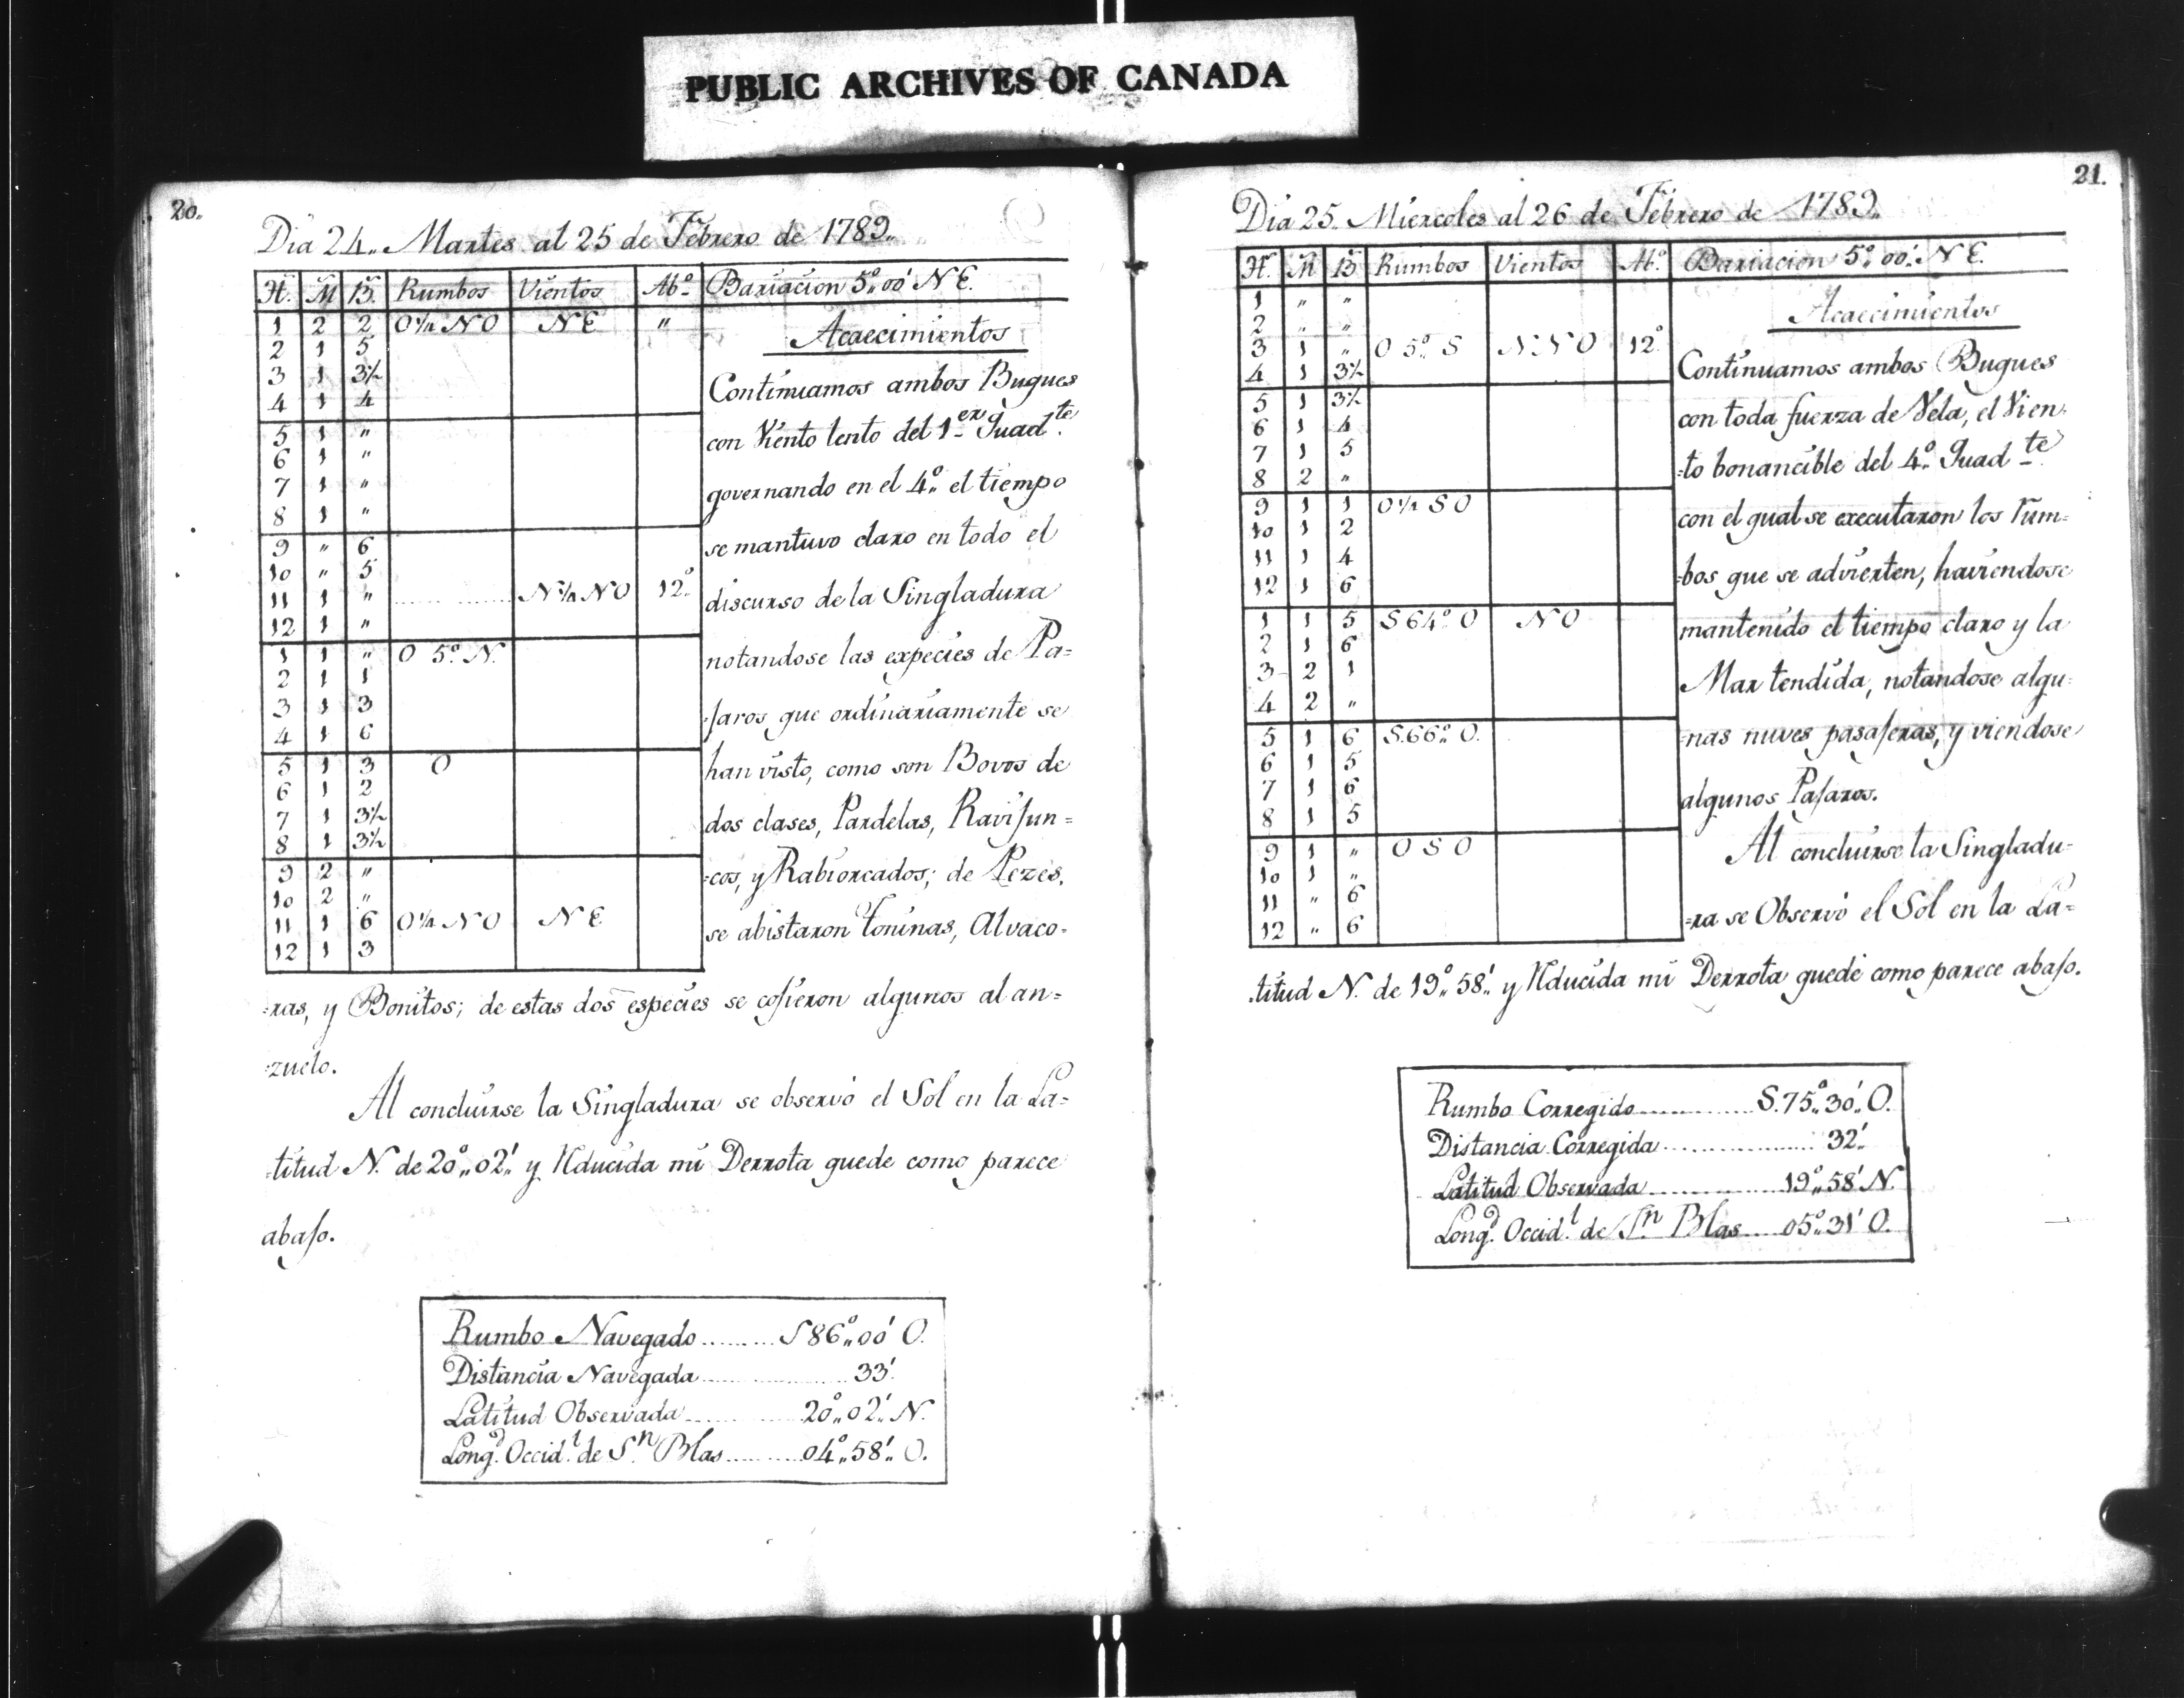 PUBLIC ARCHIVES OF CANADA
20.
Dia 24.. Martes al 25 de Febrero de 1789..
H. M B. Rumbos Vientos Ab.º Bariacion 5º,,00' N E.
1 2 2 O¼NO NE "
2 1 5
3 1 3½
4 1 4
5 1 "
6 1 "
7 1 "
8 1 "
9 " 6
10 " 5
11 1 " ................ N¼NO 12º
12 1 "
1 1 " O 5º.. N.
2 1 1
3 1 3
4 1 6
5 1 3 O
6 1 2
7 1 3½
8 1 3½
9 2 "
10 2 "
11 1 6 O¼NO NE
12 1 3
Acaecimientos
Continuamos ambos Buques
con Viento lento del 1.er Quad.te
governando en el 4.º el tiempo
se mantuvo claro en todo el
discurso de la Singladura
notandose las expecies de Pa=
=jaros que ordinariamente se
han visto, como son Bovos de
dos clases, Pardelas, Ravijun=
=cos, y Rabiorcados; de Pezes,
se abistaron Toninas, Alvaco=
=ras, y Bonitos; de estas dos especies se cojieron algunos al an=
=zuelo.
Al concluirse la Singladura se observó el Sol en la La=
=titud N. de 20º,,02'.. y Rducida mi Derrota quede como parece
abajo.
Rumbo Navegado ......... S86º,,00' O.
Distancia Navegada .................. 33'.
Latitud Observada ............. 20º,,02'.. N.
Long.d Occid.l de S.n Blas ......... 04º,,58'.. O.
21.
Dia 25.. Miercoles al 26 de Febrero de 1789..
H. M B Rumbos Vientos Ab.º Bariacion 5º,,00'.. N E.
1 " "
2 " "
3 1 " O 5º.. S NNO 12º
4 1 3½
5 1 3½
6 1 4
7 1 5
8 2 "
9 1 1 O¼SO
10 1 2
11 1 4
12 1 6
1 1 5 S 64º.. O NO
2 1 6
3 2 1
4 2 "
5 1 6 S.66º.. O.
6 1 5
7 1 6
8 1 5
9 1 " OSO
10 1 "
11 " 6
12 " 6
Acaecimientos
Continuamos ambos Buques
con toda fuerza de Vela, el Vien=
=to bonancible del 4.º Quad.te
con el qual se executaron los Rum=
=bos que se advierten, haviendose
mantenido el tiempo claro y la
Mar tendida, notandose algu=
=nas nuves pasajeras, y viendose
algunos Pajaros.
Al concluirse la Singladu=
=ra se Observó el Sol en la La=
=titud N. de 19º,,58'.. y Rducida mi Derrota quedé como parece abajo.
Rumbo Corregido ............ S.75º,,30'.. O.
Distancia Corregida .................. 32'..
Latitud Observada ................ 19º,,58' N.
Long.d Occid.l de S.n Blas ..... 05º,,31' O.